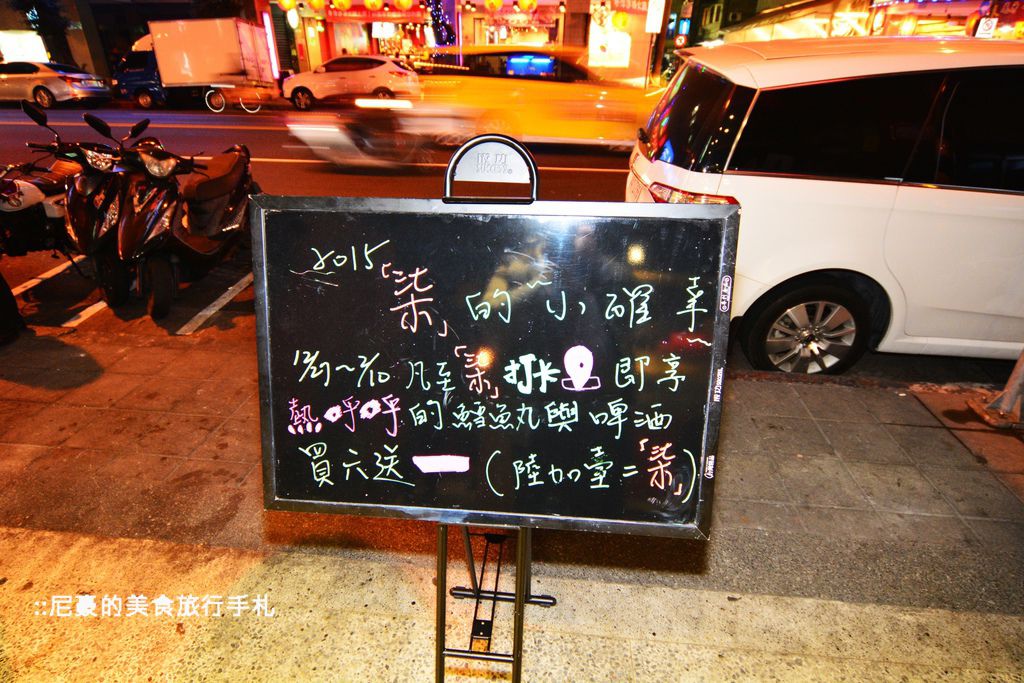 2015
「柒」的小確幸~
12/3~2/10 凡至「柒」打卡 即享
熱呼呼的鱈魚丸與啤酒
買六送一 (陸加壹=「柒」)
::尼豪的美食旅行手札